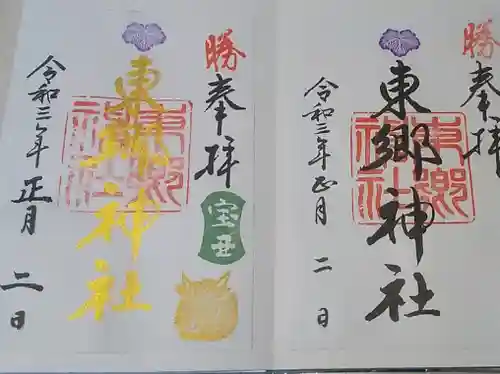 勝
奉拝
東郷神社
東郷神社
令和三年正月二日
勝
奉拝
東郷神社
東郷神社
令和三年正月二日